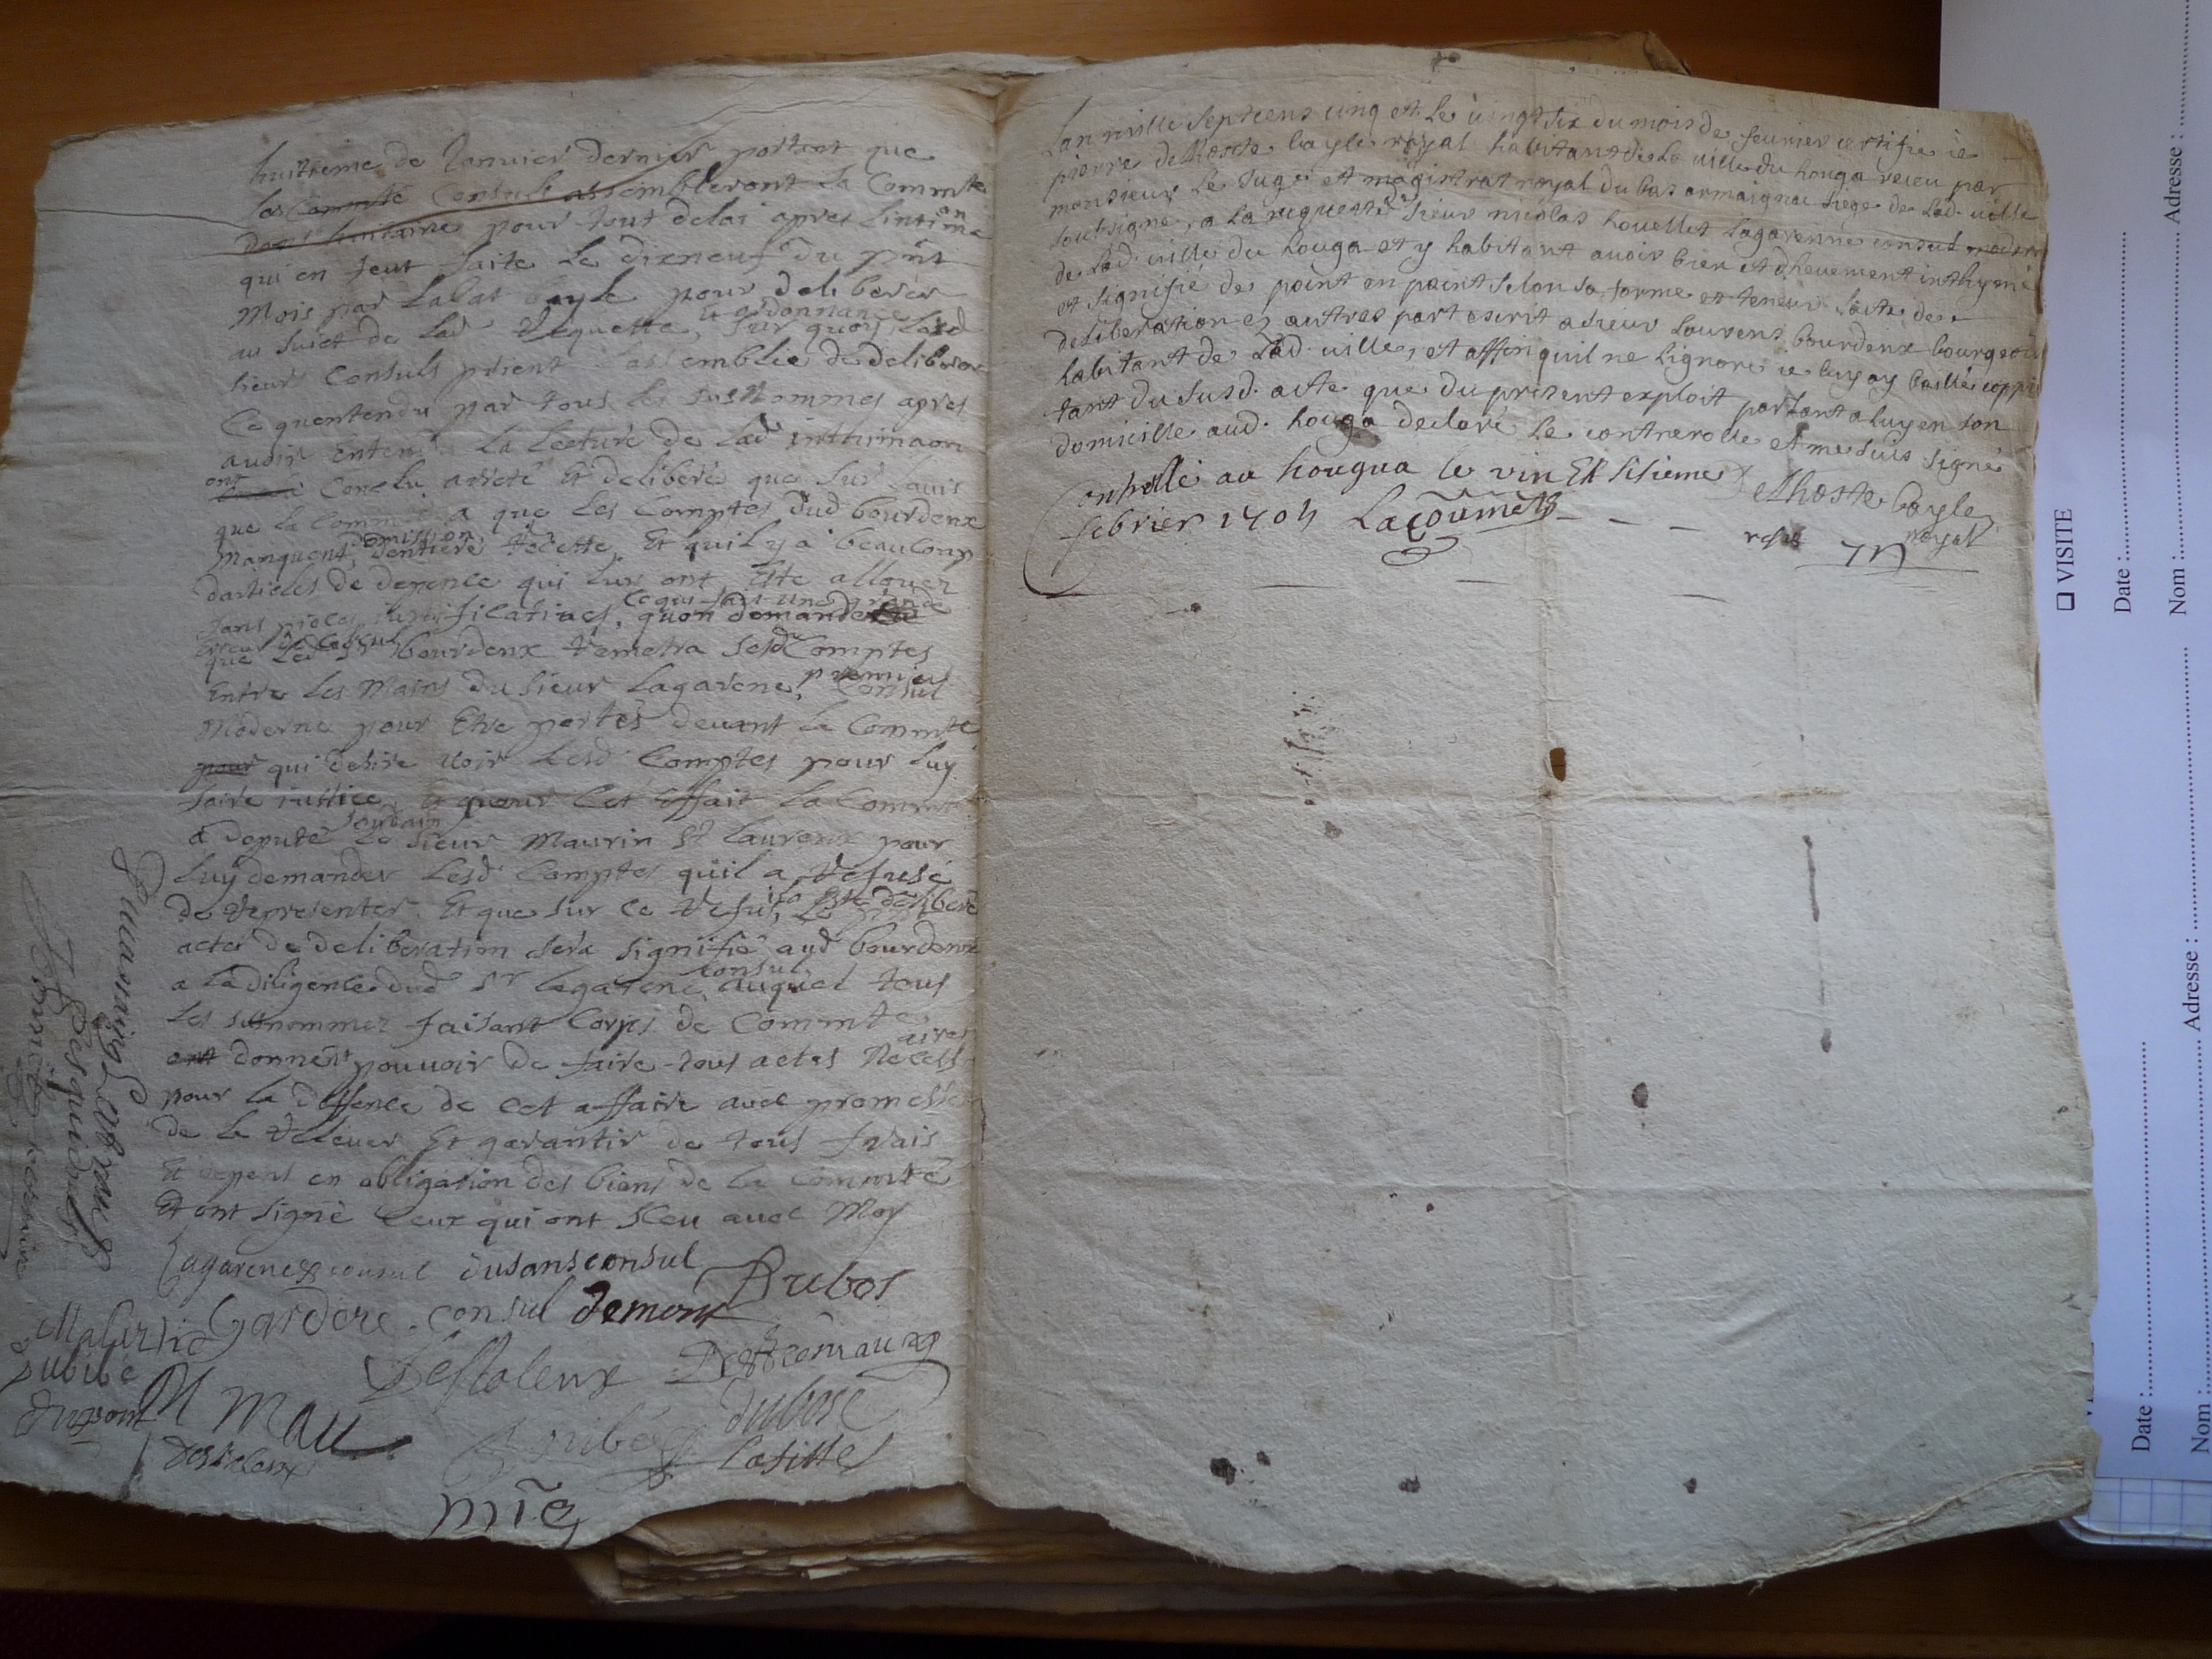 huitieme de Janvier dernier portant que
les Comnte Consuls assembleront la Commte
dans huitaine pour tout delai apres lintima
on
qui en feut faite le dixneuf du pnt
Mois par Labat bayle pour deliberer
au suiet de lad Requette, et ordonnance sur quoy Lesd
sieurs Consuls prient lassemblée de deliberer
Ce quentendu par tous les susNommes apres
avoir Entendu La lecture de lad inthimaon
ont Conclu arreté Et deliberé que sur lavis
que la Commte a que Les Comptes dud bourdenx
Manquent, domission dentiere Recette, Et quil y a beaucoup
darticles de depence qui luy ont Ete allouez
sans pieces justificatives, ce qui fait une grande quon demande
erreur
que Led Sr bourdenx Remetra sesd Comptes
Entre Les Mains du sieur Lagarene, premier Consul
Moderne pour Etre portés devant la Commte
pour qui desire voir Lesd Comptes pour luy
faire iustice, Et pour Cet Effait la Commte
a deputé le sieur Maurin St Laurens pour
Luy demander Lesd Comptes quil a Refusé
de Representer. Et que sur ce Refus, il a Esté deliberé
acte de deliberation sera signifié aud bourdenx
a la diligence dud Sr lagarene, consul auquel tous
Les susnommez faisant Corps de Commte
ont donnent pouvoir de faire tous actes Necess
aires
pour la deffence de cet affaire avec promesse
de le Relever Et garantir de tous frais
Et depens en obligation des biens de la Commté
Et ont signé Ceux qui ont sceu avec Moy
Lagarene consul dusans consul
Dubos
Gardere consul demont
Malartic
dubibé
dupont
Destaleux
dubosc
Lafitte
Lan mille septcens cinq et le vingt six du mois de feurier certifie ie
pierre delhoste bayle royal habitant de La ville du houga receu par
monsieur Le Juge et magistrat royal du bas armaignac siege de Lad. ville
soubsigne, a La requeste de sieur nicolas nouellet Lagarenne consul moderne
de Lad. ville du houga et y habitant avoir bien et dheuement inthyme
et signifié de point en point selon sa forme et teneur Lacte de
deliberation ez autres part escrit a sieur Laurens bourdenx bourgeois
habitant de Lad. ville, et affin quil ne Lignore ie luy ay baillé coppie
tant du susd. acte que du present exploit parlant a luy en son
domicille aud. houga declaré Le contrerolle et me suis signé
Conrollé au hougua le vin Et sisieme
febrier 1705 Lacoumette
delhoste bayle
royal
❑ VISITE
Date :
Nom :
Adresse :
Date :
Nom :
Adresse :